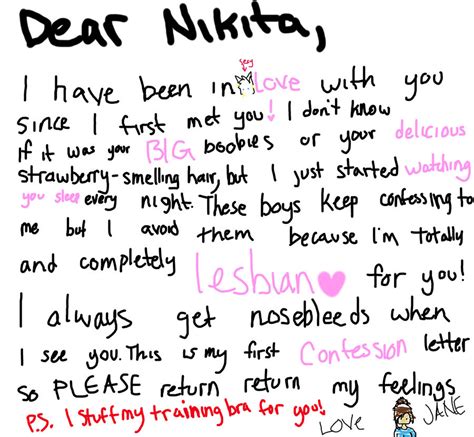 Dear Nikita,
sexy
I have been in love with you
since I first met you! I don't know
If it was your BIG boobies or your delicious
strawberry-smelling hair, but I just started watching
you sleep every night. These boys keep confessing to
me but I avoid them because I'm totally
and completely lesbian for you!
I always get nosebleeds when
I see you. This is my first Confession letter
so PLEASE return return my feelings
P.S. I stuff my training bra for you!
LOVE JANE